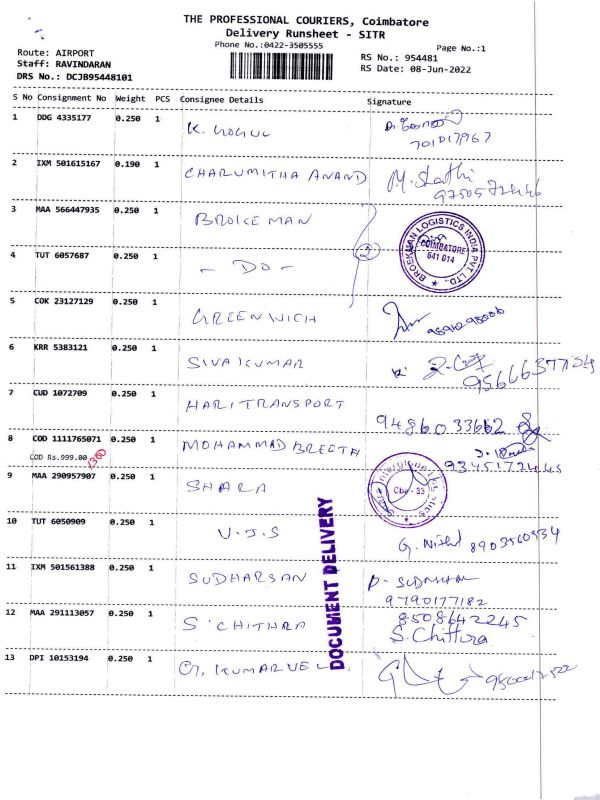 THE PROFESSIONAL COURIERS, Coimbatore
Delivery Runsheet - SITR
Phone No.:0422-3505555
Page No.:1
Route: AIRPORT
Staff: RAVINDARAN
DRS No.: DCJB95448101
RS No.: 954481
RS Date: 08-Jun-2022
S No Consignment No Weight PCS Consignee Details Signature
1 DDG 4335177 0.250 1 K. GOKUL
701017967
2 IXM 501615167 0.190 1 CHARUMITHA ANAND
3 MAA 566447935 0.250 1 BROICEMAN
BROEKMAN LOGISTICS INDIA PVT. LTD.
COIMBATORE
641 014
4 TUT 6057687 0.250 1 - DO - 2
5 COK 23127129 0.250 1 GREENWICH
6 KRR 5383121 0.250 1 SIVAKUMAR
7 CUD 1072709 0.250 1 HARITRANSPORT
9486033662
8 COD 1111765071 0.250 1 MOHAMMAD BREETH
COD Rs.999.00 1300
9345172445
9 MAA 290957907 0.250 1 SHARA
Cbe - 33
10 TUT 6050909 0.250 1 V.J.S
G. Nithl 8903560534
DOCUMENT DELIVERY
11 IXM 501561388 0.250 1 SUDHARSAN
9790177182
12 MAA 291113057 0.250 1 S. CHITHRA 8508642245
S. Chithra
13 DPI 10153194 0.250 1 G. KUMARVEL